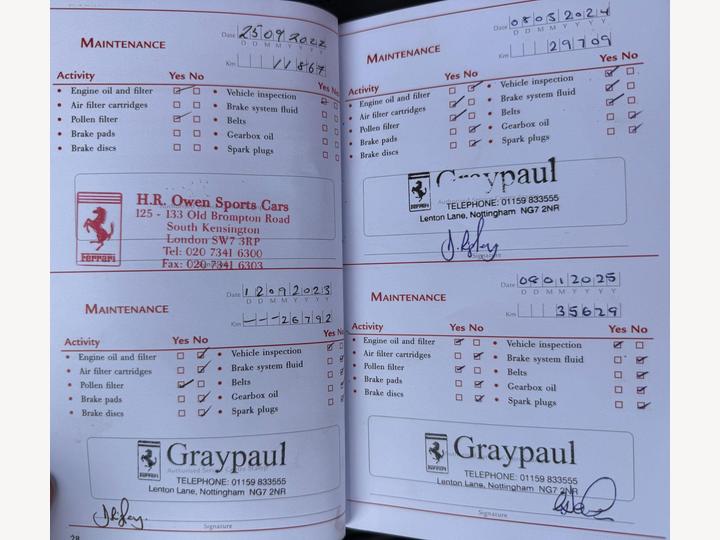 MAINTENANCE
Date 25092022
D D M M Y Y Y Y
Km 11867
Activity Yes No Yes No
• Engine oil and filter • Vehicle inspection
• Air filter cartridges • Brake system fluid
• Pollen filter • Belts
• Brake pads • Gearbox oil
• Brake discs • Spark plugs
Ferrari
H.R. Owen Sports Cars
125 - 133 Old Brompton Road
South Kensington
London SW7 3RP
Tel: 020 7341 6300
Fax: 020 7341 6303
MAINTENANCE
Date 12092023
D D M M Y Y Y Y
Km --26792
Activity Yes No Yes No
• Engine oil and filter • Vehicle inspection
• Air filter cartridges • Brake system fluid
• Pollen filter • Belts
• Brake pads • Gearbox oil
• Brake discs • Spark plugs
Ferrari
Graypaul
Authorised Service Centre Stamp
TELEPHONE: 01159 833555
Lenton Lane, Nottingham NG7 2NR
Signature
28
MAINTENANCE
Date 08032024
D D M M Y Y Y Y
Km 29709
Activity Yes No Yes No
• Engine oil and filter • Vehicle inspection
• Air filter cartridges • Brake system fluid
• Pollen filter • Belts
• Brake pads • Gearbox oil
• Brake discs • Spark plugs
Ferrari
Graypaul
TELEPHONE: 01159 833555
Lenton Lane, Nottingham NG7 2NR
Signature
MAINTENANCE
Date 08012025
D D M M Y Y Y Y
Km 35629
Activity Yes No Yes No
• Engine oil and filter • Vehicle inspection
• Air filter cartridges • Brake system fluid
• Pollen filter • Belts
• Brake pads • Gearbox oil
• Brake discs • Spark plugs
Ferrari
Graypaul
TELEPHONE: 01159 833555
Lenton Lane, Nottingham NG7 2NR
Signature